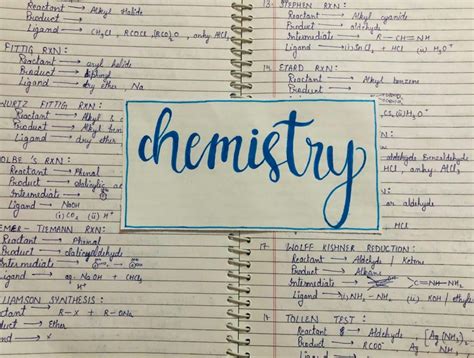 Reactant → Alkyl Halide
Product →
Ligand → CH3Cl, RCOCl, (RCO)2O, anhy AlCl3
FITTIG RXN:
Reactant → aryl halide
Product → diphenyl
Ligand → dry ether, Na
WURTZ FITTIG RXN:
Reactant → Alkyl
Product → Alkyl
Ligand → dry ether
KOLBE'S RXN:
Reactant → Phenol
Product → salicylic
Intermediate →
Ligand → NaOH
(i) CO2 (ii) H+
REIMER - TIEMANN RXN:
Reactant → Phenol
Product → salicylaldehyde
Intermediate →
Ligand → aq. NaOH + CHCl3
H+
WILLIAMSON SYNTHESIS:
R-X + R-ONa
Product → Ether
chemistry
13. STEPHEN RXN:
Reactant → Alkyl cyanide
Product → aldehyde
Intermediate → R-CH=NH
Ligand → (i) SnCl2 + HCl (ii) H2O+
ETARD RXN:
Reactant → Alkyl benzene
Product →
CS2, H3O+
aldehyde Benzaldehyde
HCl, anhy. AlCl3
or aldehyde
HCl
17. WOLFF KISHNER REDUCTION:
Reactant → Aldehyde / Ketone
Product → Alkane
Intermediate → C=NH-NH2
Ligand → NH2-NH2 (ii) KOH / ethylene
TOLLEN TEST:
Reactant → Aldehyde [Ag(NH3)2]
Product → RCOO- Ag